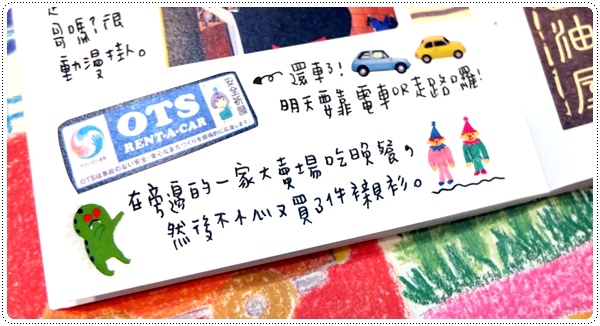 哥嗎?很
動漫掛。
還車了!
明天要靠電車OR走路囉!
安全祈願
OTS
RENT-A-CAR
在旁邊的一家大賣場吃晚餐,
然後不小心又買了件襯衫。
油屋